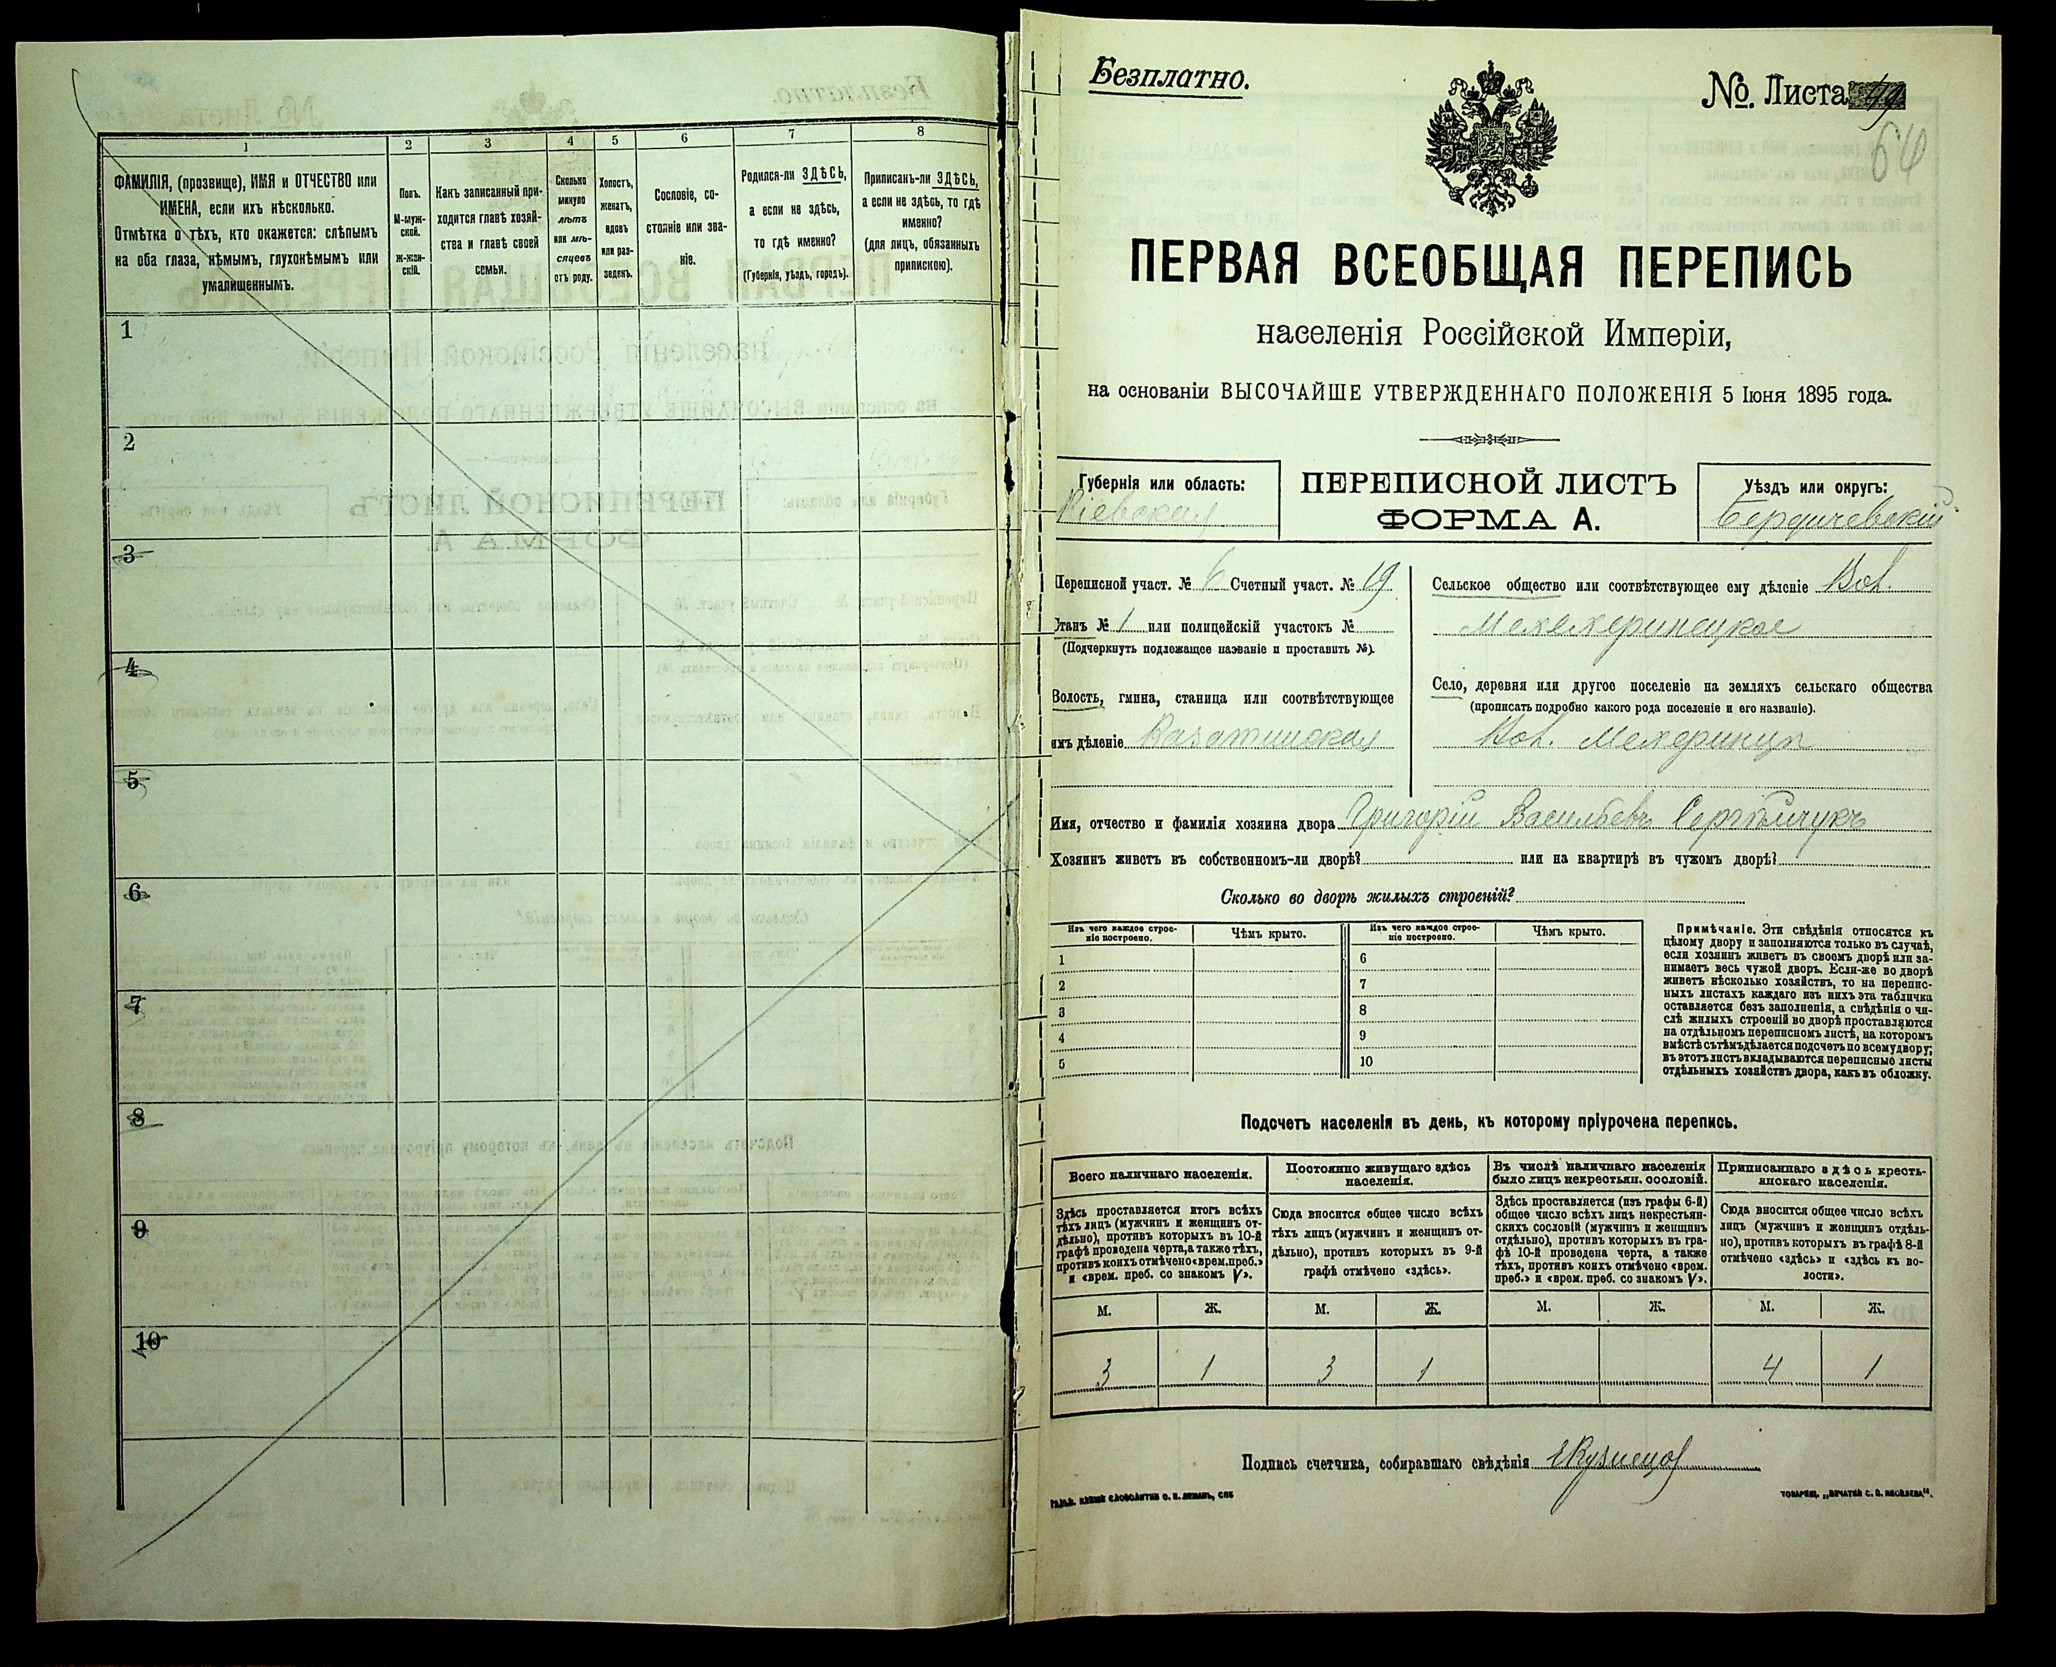 1
2
3
4
5
6
7
8
ФАМИЛІЯ, (прозвище), ИМЯ и ОТЧЕСТВО или
ИМЕНА, если ихъ нѣсколько.
Отмѣтка о тѣхъ, кто окажется: слѣпымъ
на оба глаза, нѣмымъ, глухонѣмымъ или
умалишеннымъ.
Полъ.
М-муж-
ской.
Ж-жен-
скій.
Какъ записанный при-
ходится главѣ хозяй-
ства и главѣ своей
семьи.
Сколько
минуло
лѣтъ
или мѣ-
сяцевъ
отъ роду.
Холостъ,
женатъ,
вдовъ
или раз-
веденъ.
Сословіе, со-
стояніе или зва-
ніе.
Родился-ли ЗДѢСЬ,
а если не здѣсь,
то гдѣ именно?
(Губернія, уѣздъ, городъ).
Приписанъ-ли ЗДѢСЬ,
а если не здѣсь, то гдѣ
именно?
(для лицъ, обязанныхъ
припискою).
1
2
3
4
5
6
7
8
9
10
Безплатно.
№. Листа
64
ПЕРВАЯ ВСЕОБЩАЯ ПЕРЕПИСЬ
населенія Россійской Имперіи,
на основаніи ВЫСОЧАЙШЕ УТВЕРЖДЕННАГО ПОЛОЖЕНІЯ 5 Іюня 1895 года.
Губернія или область:
Кіевская
ПЕРЕПИСНОЙ ЛИСТЪ
ФОРМА А.
Уѣздъ или округъ:
Бердичевскій
Переписной участ. № 6 Счетный участ. № 19
Станъ № 1 или полицейскій участокъ №
(Подчеркнуть подлежащее названіе и проставить №).
Волость, гмина, станица или соотвѣтствующее
имъ дѣленіе Казатинская
Сельское общество или соотвѣтствующее ему дѣленіе
Село, деревня или другое поселеніе на земляхъ сельскаго общества
(прописать подробно какого рода поселеніе и его названіе).
Имя, отчество и фамилія хозяина двора Григорій Васильевъ Сергійчукъ
Хозяинъ живетъ въ собственномъ-ли дворѣ? или на квартирѣ въ чужомъ дворѣ?
Сколько во дворѣ жилыхъ строеній?
Изъ чего каждое строе-
ніе построено.
Чѣмъ крыто.
Изъ чего каждое строе-
ніе построено.
Чѣмъ крыто.
1
2
3
4
5
6
7
8
9
10
Примѣчаніе. Эти свѣдѣнія относятся къ
цѣлому двору и заполняются только въ случаѣ,
если хозяинъ живетъ въ своемъ дворѣ или за-
нимаетъ весь чужой дворъ. Если-же во дворѣ
живетъ нѣсколько хозяйствъ, то на перепис-
ныхъ листахъ каждаго изъ нихъ эта табличка
оставляется безъ заполненія, а свѣдѣнія о чи-
слѣ жилыхъ строеній во дворѣ проставляются
на отдѣльномъ переписномъ листѣ, на которомъ
вмѣстѣ съ тѣмъ дѣлается подсчетъ по всему двору;
въ этотъ листъ вкладываются переписные листы
отдѣльныхъ хозяйствъ двора, какъ въ обложку.
Подсчетъ населенія въ день, къ которому пріурочена перепись.
Всего наличнаго населенія.
Постоянно живущаго здѣсь
населенія.
Въ числѣ наличнаго населенія
было лицъ некрестьян. сословій.
Приписаннаго здѣсь кресть-
янскаго населенія.
Здѣсь проставляется итогъ всѣхъ
тѣхъ лицъ (мужчинъ и женщинъ от-
дѣльно), противъ которыхъ въ 10-й
графѣ проведена черта, а также тѣхъ,
противъ коихъ отмѣчено «врем. преб.»
и «врем. преб. со знакомъ V».
Сюда вносится общее число всѣхъ
тѣхъ лицъ (мужчинъ и женщинъ от-
дѣльно), противъ которыхъ въ 9-й
графѣ отмѣчено «здѣсь».
Здѣсь проставляется (изъ графы 6-й)
общее число всѣхъ лицъ некрестьян-
скихъ сословій (мужчинъ и женщинъ
отдѣльно), противъ которыхъ въ гра-
фѣ 10-й проведена черта, а также
тѣхъ, противъ коихъ отмѣчено «врем.
преб.» и «врем. преб. со знакомъ V».
Сюда вносится общее число всѣхъ
лицъ (мужчинъ и женщинъ отдѣль-
но), противъ которыхъ въ графѣ 8-й
отмѣчено «здѣсь» и «здѣсь къ во-
лости».
М. Ж. М. Ж. М. Ж. М. Ж.
3 1 3 1 4 1
Подпись счетчика, собиравшаго свѣдѣнія Кузнецов
ТОВАРИЩ. „ПЕЧАТНЯ С. П. ЯКОВЛЕВА".